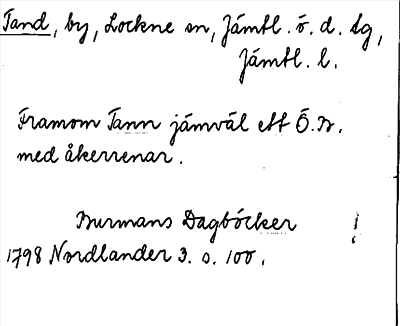 Tand, by, Lockne sn, Jämtl. ö. d. tg,
Jämtl. l.
Framom Tann jämväl ett Ö.N.
med åkerrenar.
Burmans Dagböcker !
1798 Nordlander 3. s. 100.